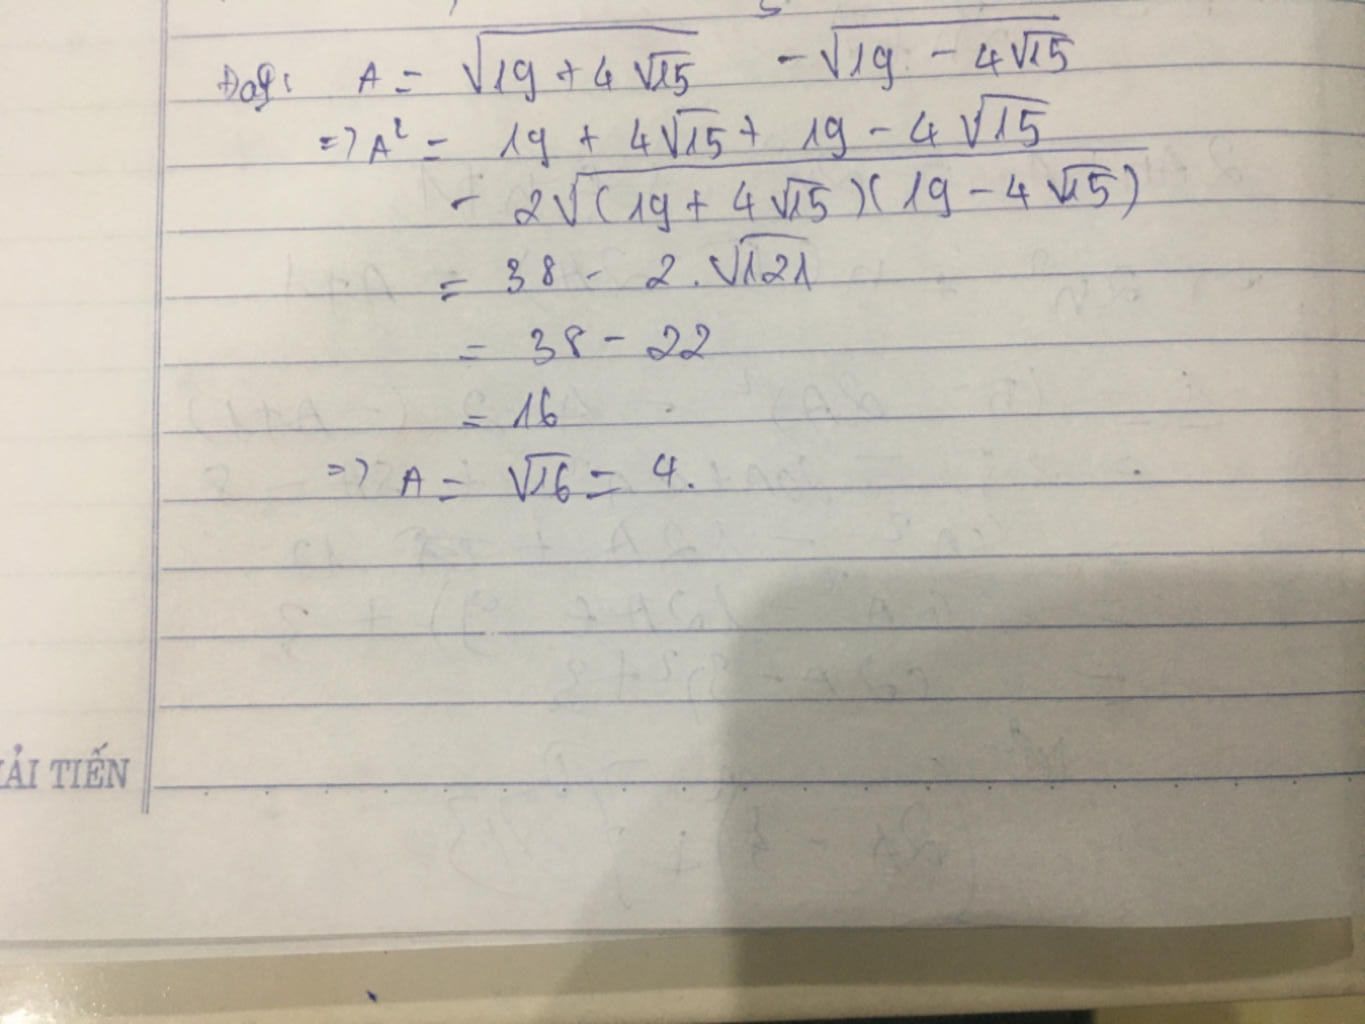 Đặt: A = √(19 + 4√15) - √(19 - 4√15)
=> A² = 19 + 4√15 + 19 - 4√15
- 2√((19 + 4√15)(19 - 4√15))
= 38 - 2.√121
= 38 - 22
= 16
=> A = √16 = 4.
ẢI TIẾN